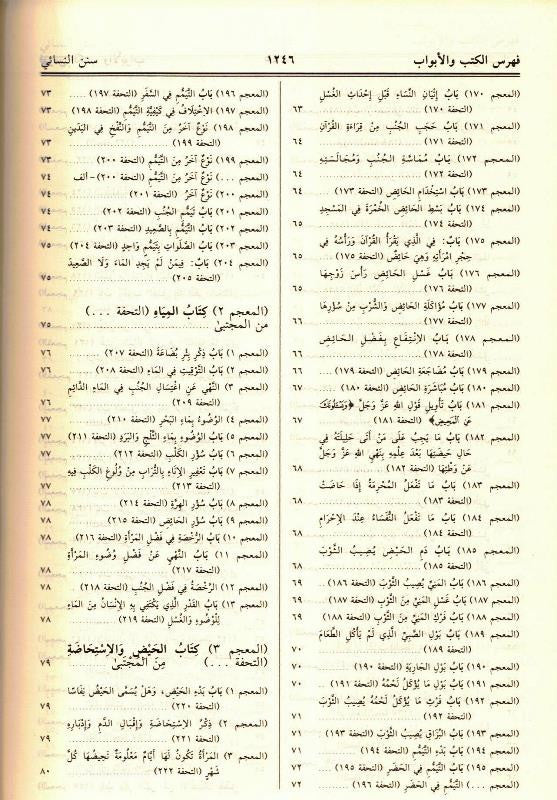 فهرس الكتب والأبواب
١٢٤٦
سنن النسائي
(المعجم ١٧٠) بَابُ إِتْيَانِ النِّسَاءِ قَبْلَ إِحْدَاثِ الْغُسْلِ
(التحفة ١٧٠) ........ ٦٣
(المعجم ١٧١) بَابُ حَجْبِ الْجُنُبِ مِنْ قِرَاءَةِ الْقُرْآنِ
(التحفة ١٧١) ........ ٦٤
(المعجم ١٧٢) بَابُ مُمَاسَّةِ الْجُنُبِ وَمُجَالَسَتِهِ
(التحفة ١٧٢) ........ ٦٤
(المعجم ١٧٣) بَابُ اسْتِخْدَامِ الْحَائِضِ (التحفة ١٧٣) .. ٦٤
(المعجم ١٧٤) بَابُ بَسْطِ الْحَائِضِ الْخُمْرَةَ فِي الْمَسْجِدِ
(التحفة ١٧٤) ........ ٦٥
(المعجم ١٧٥) بَابٌ: فِي الَّذِي يَقْرَأُ الْقُرْآنَ وَرَأْسُهُ فِي
حِجْرِ امْرَأَتِهِ وَهِيَ حَائِضٌ (التحفة ١٧٥) ........ ٦٥
(المعجم ١٧٦) بَابُ غَسْلِ الْحَائِضِ رَأْسَ زَوْجِهَا
(التحفة ١٧٦) ........ ٦٥
(المعجم ١٧٧) بَابُ مُؤَاكَلَةِ الْحَائِضِ وَالشُّرْبِ مِنْ سُؤْرِهَا
(التحفة ١٧٧) ........ ٦٦
(المعجم ١٧٨) بَابُ الْاِنْتِفَاعِ بِفَضْلِ الْحَائِضِ
(التحفة ١٧٨) ........ ٦٦
(المعجم ١٧٩) بَابُ مُضَاجَعَةِ الْحَائِضِ (التحفة ١٧٩) .. ٦٦
(المعجم ١٨٠) بَابُ مُبَاشَرَةِ الْحَائِضِ (التحفة ١٨٠) .. ٦٧
(المعجم ١٨١) بَابُ تَأْوِيلِ قَوْلِ اللهِ عَزَّ وَجَلَّ ﴿وَيَسْـَٔلُونَكَ
عَنِ ٱلْمَحِيضِ﴾ (التحفة ١٨١) ........ ٦٧
(المعجم ١٨٢) بَابُ مَا يَجِبُ عَلَى مَنْ أَتَى حَلِيلَتَهُ فِي
حَالِ حَيْضَتِهَا بَعْدَ عِلْمِهِ بِنَهْيِ اللهِ عَزَّ وَجَلَّ
عَنْ وَطْئِهَا (التحفة ١٨٢) ........ ٦٨
(المعجم ١٨٣) بَابُ مَا تَفْعَلُ الْمُحْرِمَةُ إِذَا حَاضَتْ
(التحفة ١٨٣) ........ ٦٨
(المعجم ١٨٤) بَابُ مَا تَفْعَلُ النُّفَسَاءُ عِنْدَ الْإِحْرَامِ
(التحفة ١٨٤) ........ ٦٨
(المعجم ١٨٥) بَابُ دَمِ الْحَيْضِ يُصِيبُ الثَّوْبَ
(التحفة ١٨٥) ........ ٦٨
(المعجم ١٨٦) بَابُ الْمَنِيِّ يُصِيبُ الثَّوْبَ (التحفة ١٨٦) .. ٦٩
(المعجم ١٨٧) بَابُ غَسْلِ الْمَنِيِّ مِنَ الثَّوْبِ (التحفة ١٨٧) .. ٦٩
(المعجم ١٨٨) بَابُ فَرْكِ الْمَنِيِّ مِنَ الثَّوْبِ (التحفة ١٨٨) .. ٦٩
(المعجم ١٨٩) بَابُ بَوْلِ الصَّبِيِّ الَّذِي لَمْ يَأْكُلِ الطَّعَامَ
(التحفة ١٨٩) ........ ٧٠
(المعجم ١٩٠) بَابُ بَوْلِ الْجَارِيَةِ (التحفة ١٩٠) ........ ٧٠
(المعجم ١٩١) بَابُ بَوْلِ مَا يُؤْكَلُ لَحْمُهُ (التحفة ١٩١) .. ٧٠
(المعجم ١٩٢) بَابُ فَرْثِ مَا يُؤْكَلُ لَحْمُهُ يُصِيبُ الثَّوْبَ
(التحفة ١٩٢) ........ ٧١
(المعجم ١٩٣) بَابُ الْبُزَاقِ يُصِيبُ الثَّوْبَ (التحفة ١٩٣) .. ٧١
(المعجم ١٩٤) بَابُ بَدْءِ التَّيَمُّمِ (التحفة ١٩٤) ........ ٧١
(المعجم ١٩٥) بَابُ التَّيَمُّمِ فِي الْحَضَرِ (التحفة ١٩٥) ... ٧٢
(المعجم ...) التَّيَمُّمِ فِي الْحَضَرِ (التحفة ١٩٦) ........ ٧٢
(المعجم ١٩٦) بَابُ التَّيَمُّمِ فِي السَّفَرِ (التحفة ١٩٧) .... ٧٣
(المعجم ١٩٧) الْاِخْتِلَافُ فِي كَيْفِيَّةِ التَّيَمُّمِ (التحفة ١٩٨) ٧٣
(المعجم ١٩٨) نَوْعٌ آخَرُ مِنَ التَّيَمُّمِ وَالنَّفْخِ فِي الْيَدَيْنِ
(التحفة ١٩٩) ........ ٧٣
(المعجم ١٩٩) نَوْعٌ آخَرُ مِنَ التَّيَمُّمِ (التحفة ٢٠٠) .... ٧٣
(المعجم ...) نَوْعٌ آخَرُ مِنَ التَّيَمُّمِ (التحفة ٢٠٠)-ألف ٧٤
(المعجم ٢٠٠) نَوْعٌ آخَرُ (التحفة ٢٠١) ........ ٧٤
(المعجم ٢٠١) بَابُ تَيَمُّمِ الْجُنُبِ (التحفة ٢٠٢) ........ ٧٤
(المعجم ٢٠٢) بَابُ التَّيَمُّمِ بِالصَّعِيدِ (التحفة ٢٠٣) ..... ٧٤
(المعجم ٢٠٣) بَابُ الصَّلَوَاتِ بِتَيَمُّمٍ وَاحِدٍ (التحفة ٢٠٤) ٧٥
(المعجم ٢٠٤) بَابٌ: فِيمَنْ لَمْ يَجِدِ الْمَاءَ وَلَا الصَّعِيدَ
(التحفة ٢٠٥) ........ ٧٥
(المعجم ٢) كِتَابُ الْمِيَاهِ (التحفة ...)
من المجتبىٰ ........ ٧٥
(المعجم ١) بَابُ ذِكْرِ بِئْرِ بُضَاعَةَ (التحفة ٢٠٧) ...... ٧٦
(المعجم ٢) بَابُ التَّوْقِيتِ فِي الْمَاءِ (التحفة ٢٠٨) ...... ٧٦
(المعجم ٣) النَّهْيُ عَنِ اغْتِسَالِ الْجُنُبِ فِي الْمَاءِ الدَّائِمِ
(التحفة ٢٠٩) ........ ٧٦
(المعجم ٤) الْوُضُوءُ بِمَاءِ الْبَحْرِ (التحفة ٢١٠) ........ ٧٧
(المعجم ٥) بَابُ الْوُضُوءِ بِمَاءِ الثَّلْجِ وَالْبَرَدِ (التحفة ٢١١) ٧٧
(المعجم ٦) بَابُ سُؤْرِ الْكَلْبِ (التحفة ٢١٢) ........ ٧٧
(المعجم ٧) بَابُ تَعْفِيرِ الْإِنَاءِ بِالتُّرَابِ مِنْ وُلُوغِ الْكَلْبِ فِيهِ
(التحفة ٢١٣) ........ ٧٧
(المعجم ٨) بَابُ سُؤْرِ الْهِرَّةِ (التحفة ٢١٤) ........ ٧٨
(المعجم ٩) بَابُ سُؤْرِ الْحَائِضِ (التحفة ٢١٥) ........ ٧٨
(المعجم ١٠) بَابُ الرُّخْصَةِ فِي فَضْلِ الْمَرْأَةِ (التحفة ٢١٦) ٧٨
(المعجم ١١) بَابُ النَّهْيِ عَنْ فَضْلِ وُضُوءِ الْمَرْأَةِ
(التحفة ٢١٧) ........ ٧٨
(المعجم ١٢) الرُّخْصَةُ فِي فَضْلِ الْجُنُبِ (التحفة ٢١٨) .. ٧٨
(المعجم ١٣) بَابُ الْقَدْرِ الَّذِي يَكْتَفِي بِهِ الْإِنْسَانُ مِنَ الْمَاءِ
لِلْوُضُوءِ وَالْغُسْلِ (التحفة ٢١٩) ........ ٧٨
(المعجم ٣) كِتَابُ الْحَيْضِ وَالْاِسْتِحَاضَةِ
(التحفة ...) مِنَ الْمُجْتَبىٰ ........ ٧٩
(المعجم ١) بَابُ بَدْءِ الْحَيْضِ، وَهَلْ يُسَمَّى الْحَيْضُ نِفَاسًا
(التحفة ٢٢٠) ........ ٧٩
(المعجم ٢) ذِكْرُ الْاِسْتِحَاضَةِ وَإِقْبَالِ الدَّمِ وَإِدْبَارِهِ
(التحفة ٢٢١) ........ ٧٩
(المعجم ٣) الْمَرْأَةُ تَكُونُ لَهَا أَيَّامٌ مَعْلُومَةٌ تَحِيضُهَا كُلَّ
شَهْرٍ (التحفة ٢٢٢) ........ ٨٠